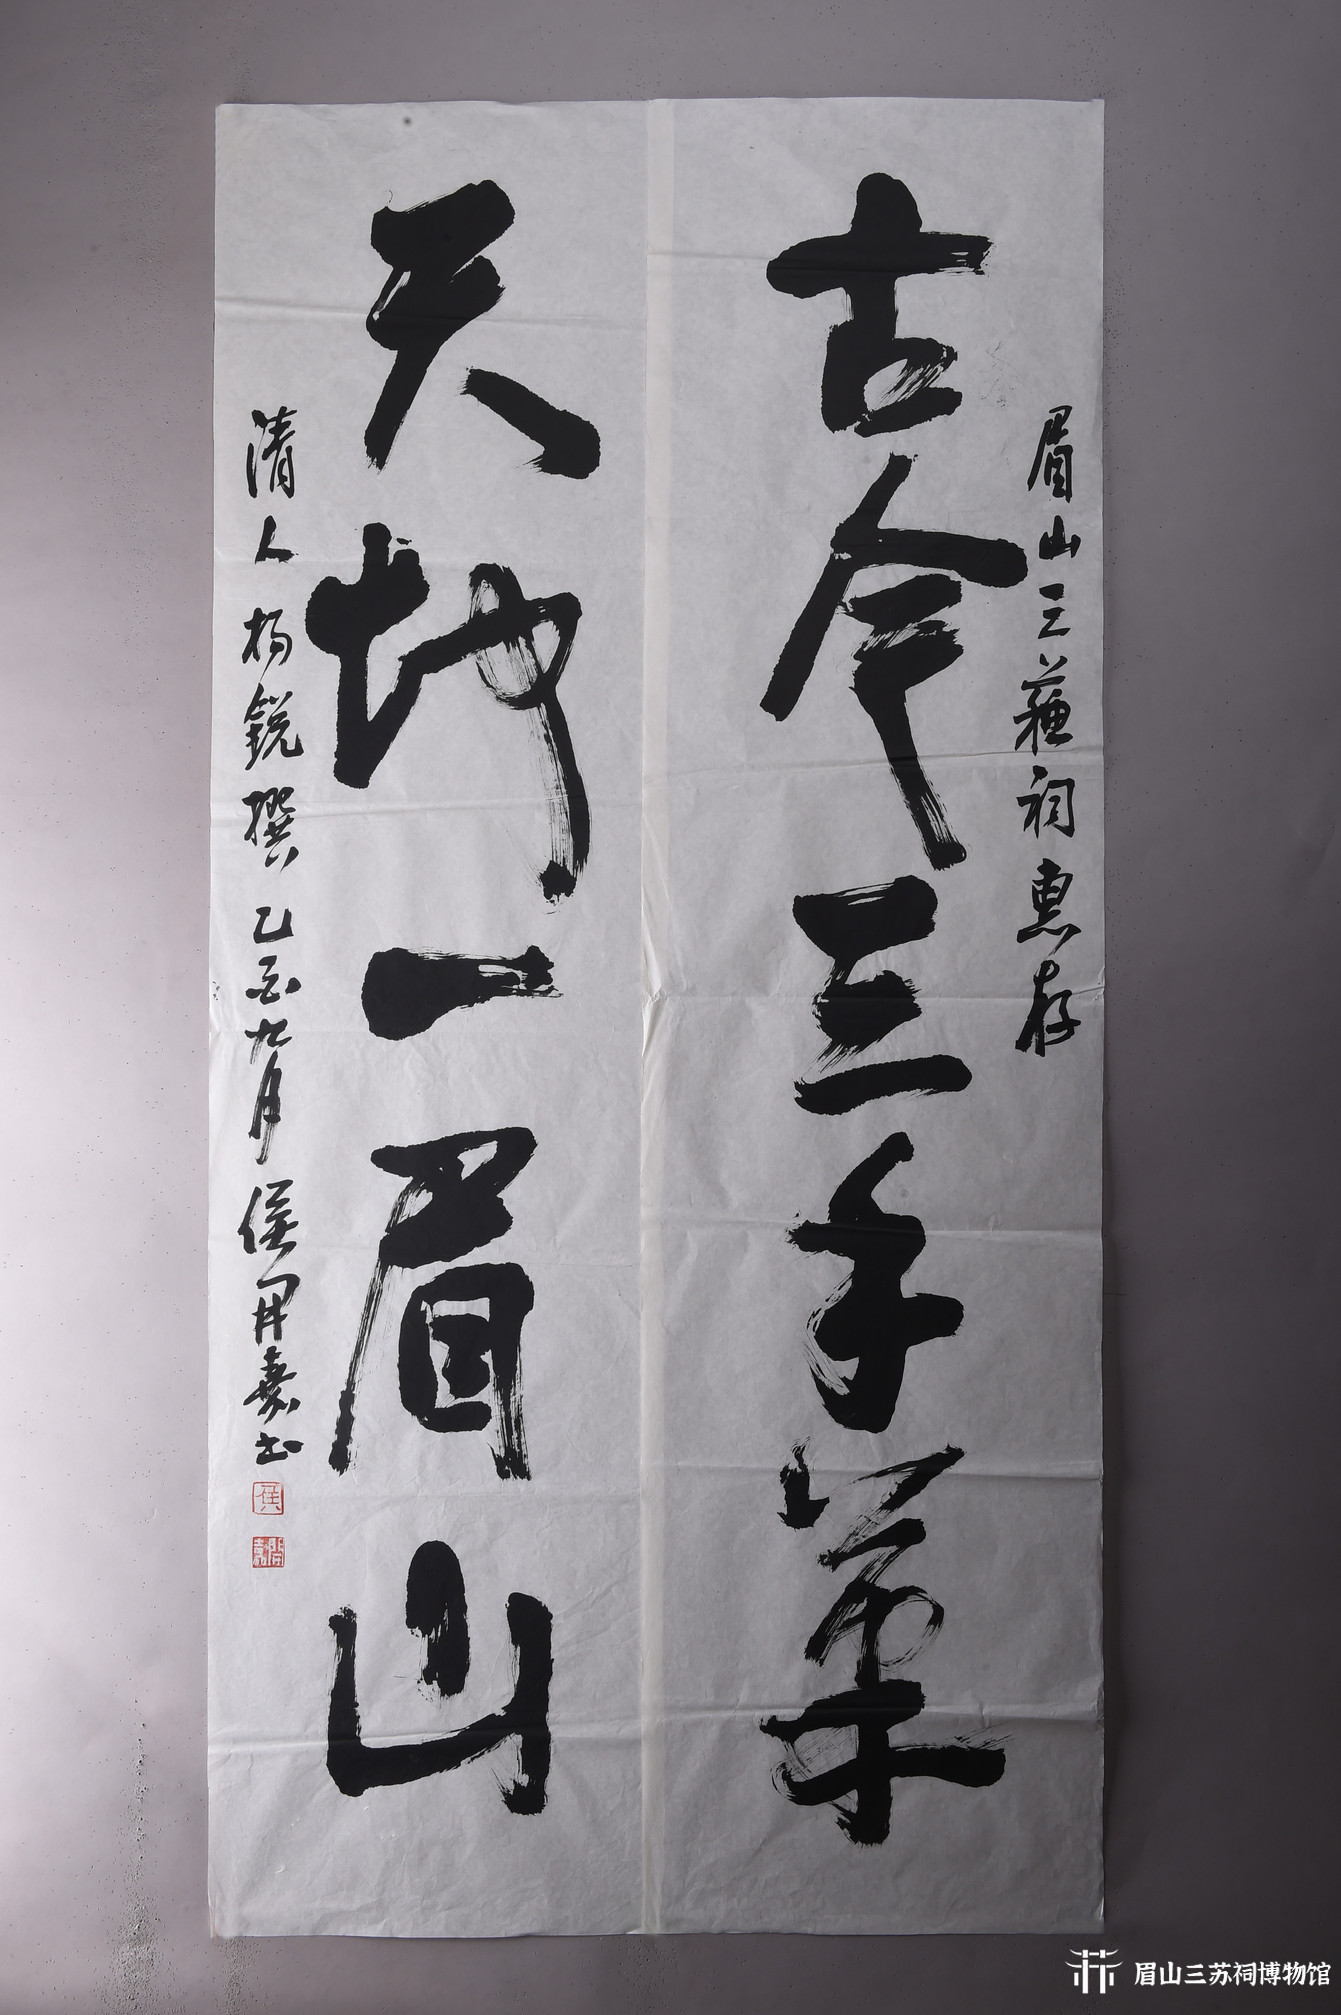 眉山三蘇祠惠存
古今三手筆
天地一眉山
清人楊銳撰 乙酉九月 侯開嘉书
侯
開嘉
眉山三苏祠博物馆